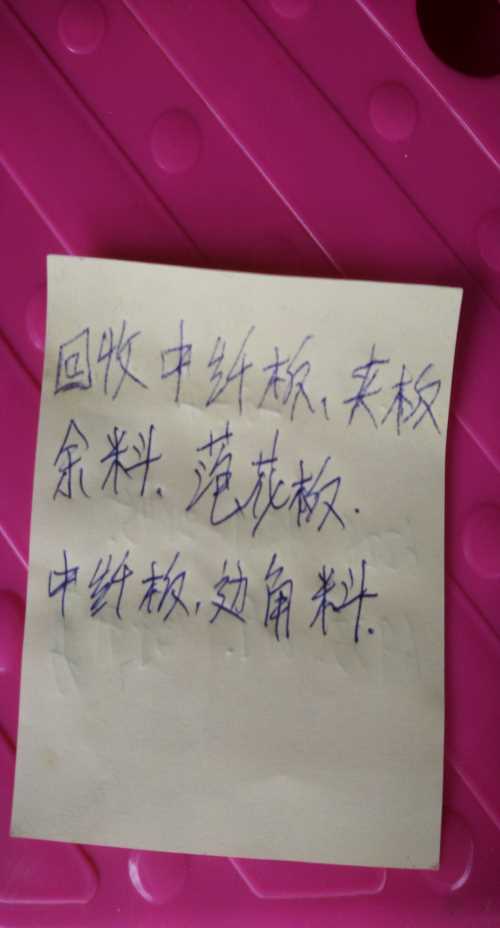 回收中纤板、夹板
余料.范花板.
中纤板.边角料.